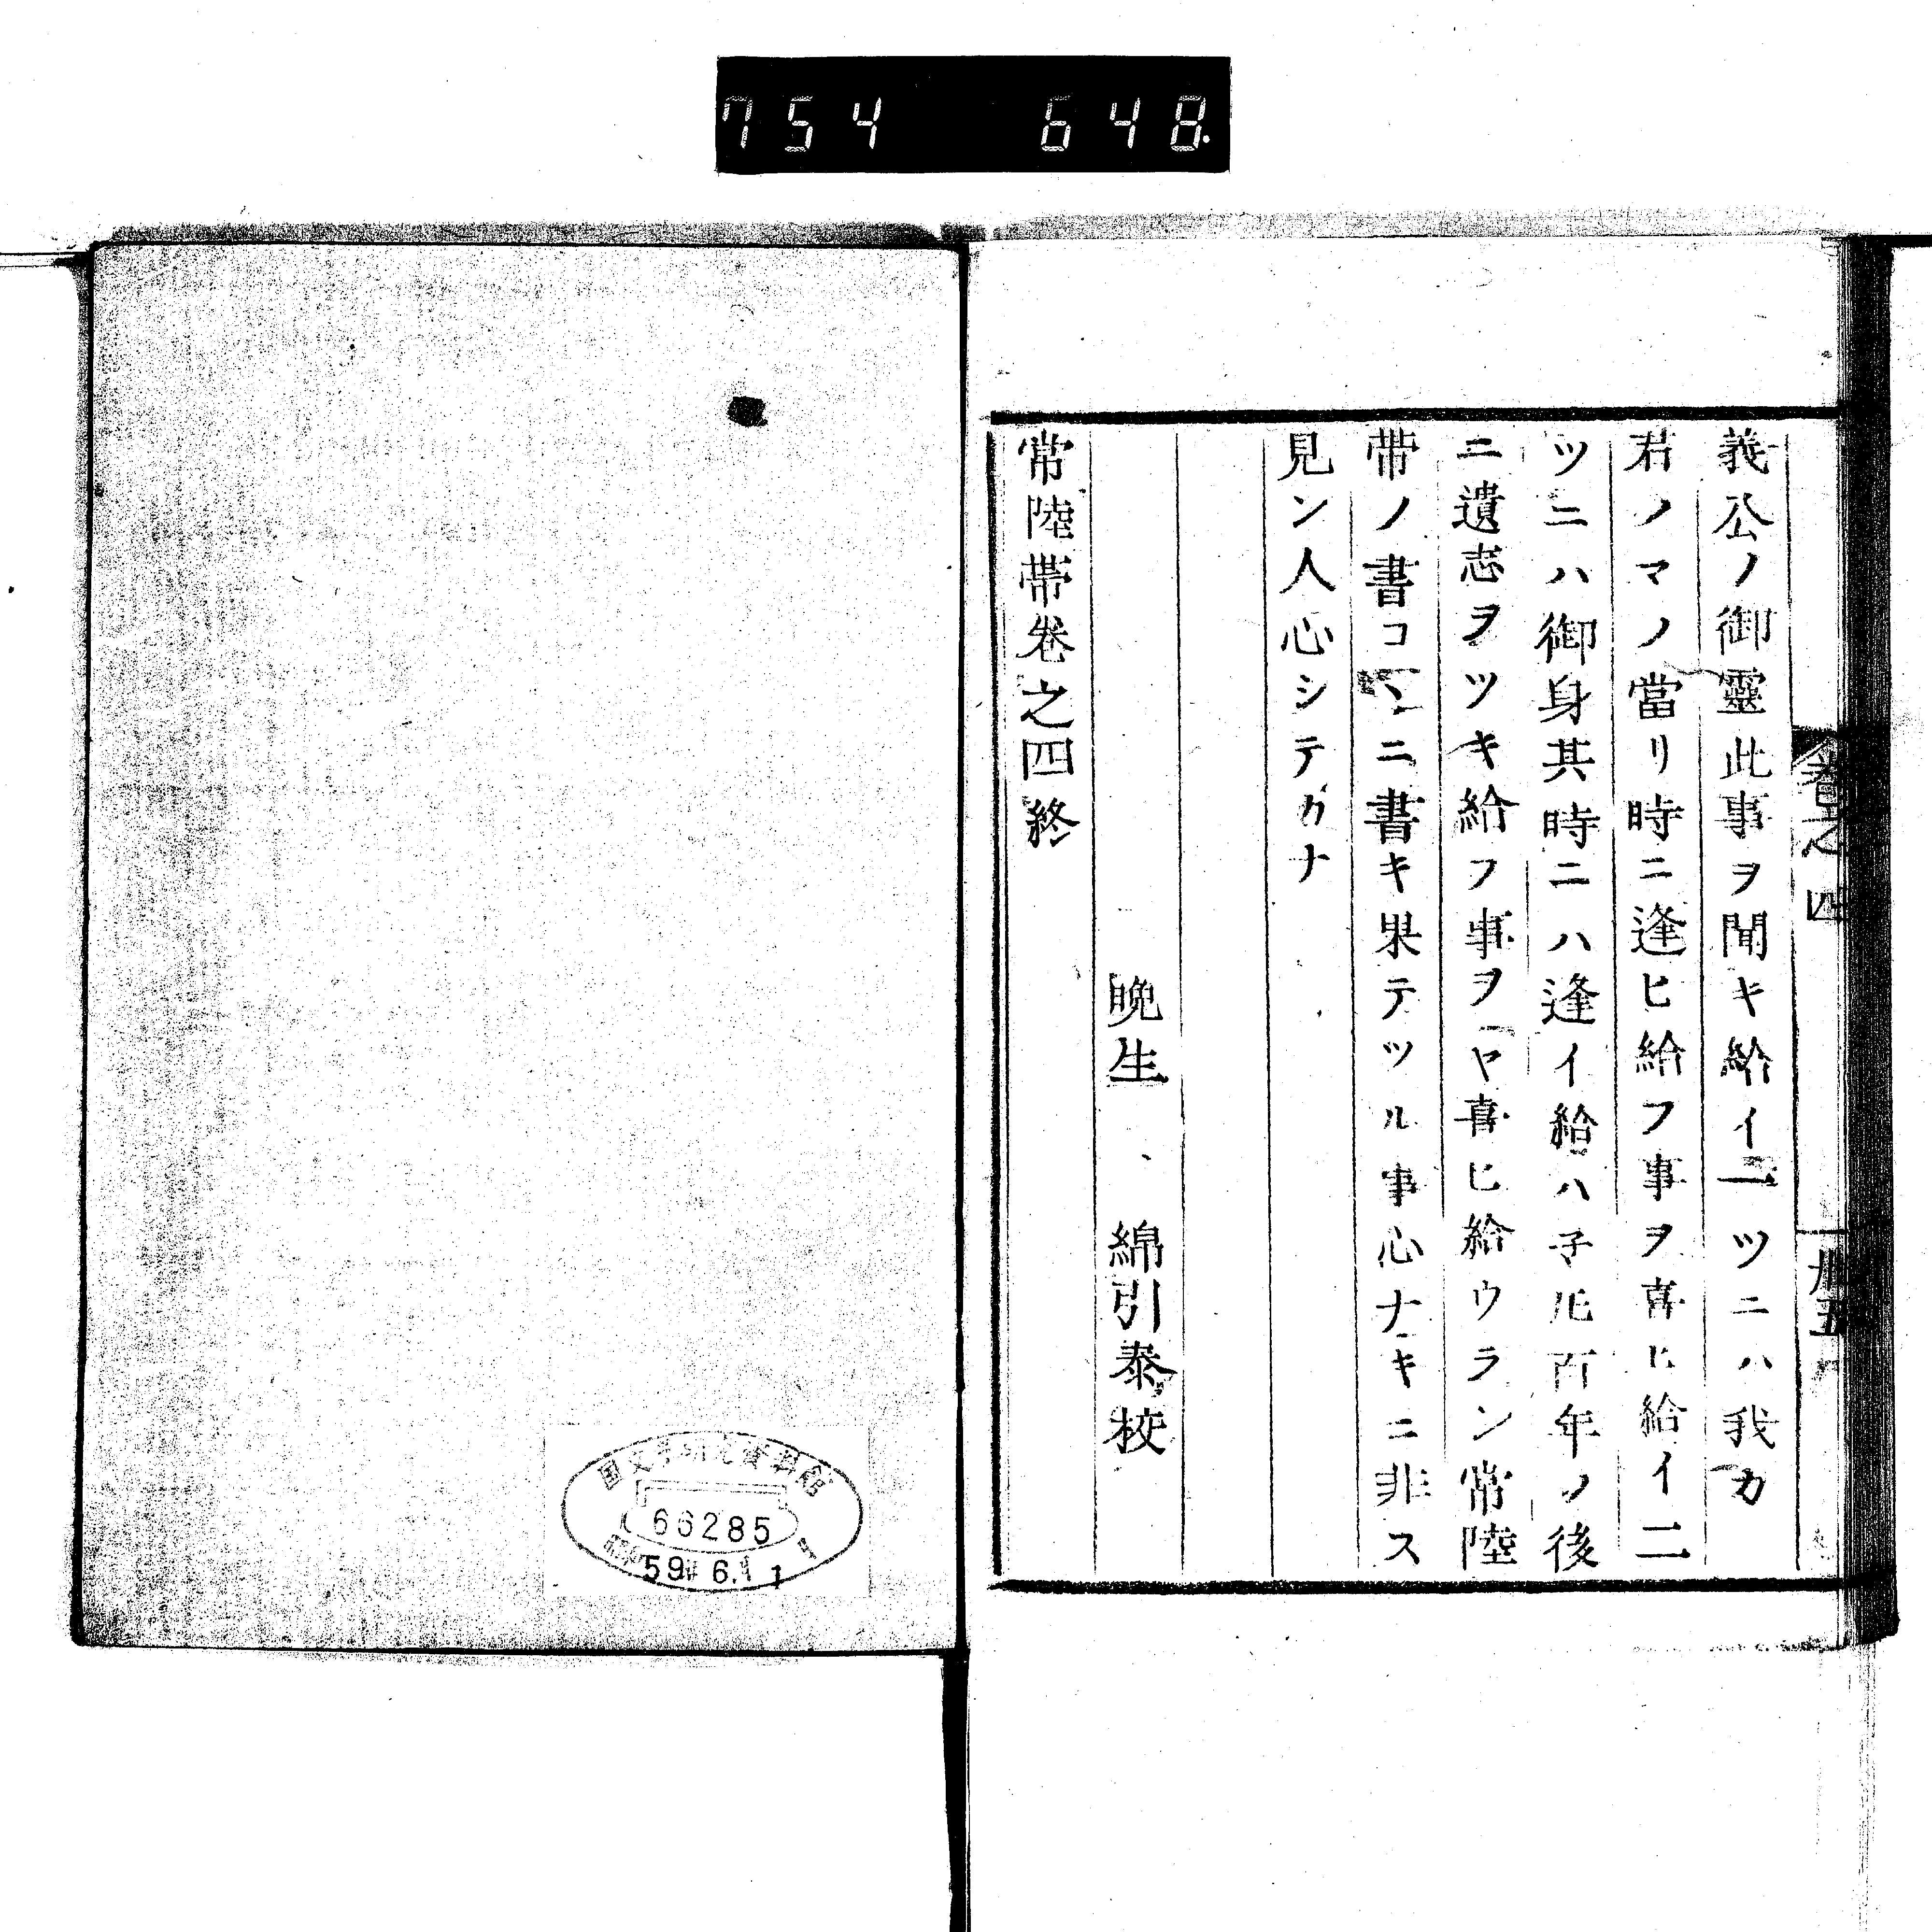 754 648.
巻之四 卅五
義公ノ御靈此事ヲ聞キ給イ一ツニハ我カ
君ノマノ當リ時ニ逢ヒ給フ事ヲ喜ヒ給イ二
ツニハ御身其時ニハ逢イ給ハ子𪜈百年ノ後
ニ遺志ヲツキ給フ事ヲヤ喜ヒ給ウラン常陸
帯ノ書コヽニ書キ果テツル事心ナキニ非ス
見ン人心シテカナ
晩生 綿引泰校
常陸帯巻之四終
国文学研究資料館
66285
昭和59年6月1日